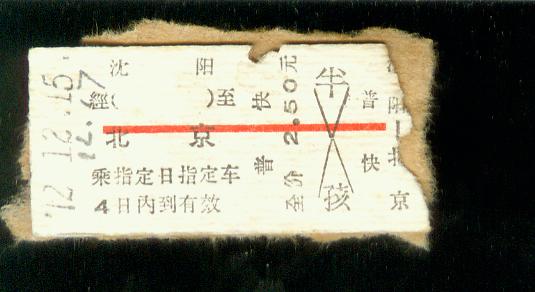 沈 阳
經( )至
北 京
乘指定日指定车
4日内到有效
普 快
全价 2.50元
半
孩
普
快
阳—北
京